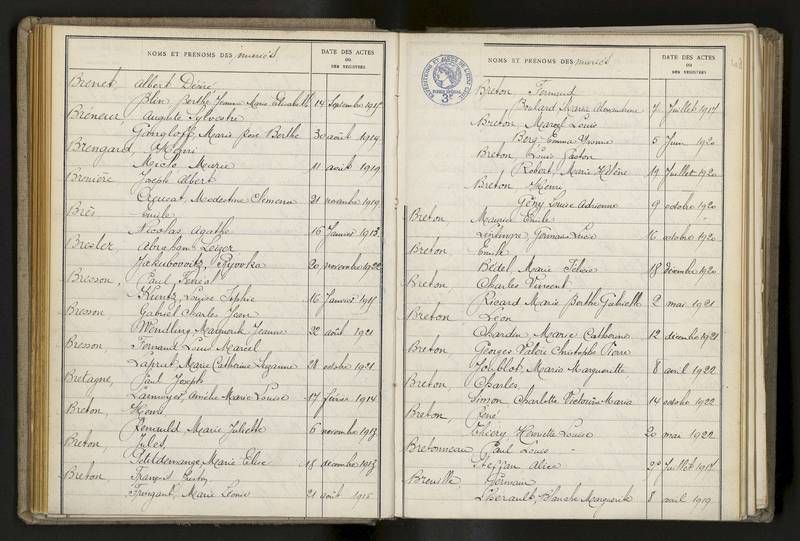 NOMS ET PRÉNOMS DES mariés
DATE DES ACTES
OU
DES REGISTRES
Brenet, Albert Désiré
Blin, Berthe Jeanne Marie Elisabeth 14 Septembre 1917
Bréneur Auguste Sylvestre
Gangloff, Marie Rose Berthe 30 août 1919
Brengard, Henri
Miclo Marie 11 août 1919
Joseph Albert
Creusat, Modestine Clémence 21 novembre 1919
Brès Emile
Nicolas, Agathe 16 Janvier 1913
Bresler Abraham Léger
Jakubovitz, 20, novembre 1922
Bresson, Paul
Kuntz, Louise Sophie 16 Janvier 1917
Bresson Gabriel Charles Jean
Wendling Marguerite Jeanne 22 août 1921
Bresson Fernand Louis Marcel
Marie Catherine Suzanne 28 octobre 1921
Bretagne, Paul Joseph
Marie Louise 17 février 1914
Breton, Henri
Renauld Marie Juliette 6 novembre 1913
Breton, Jules,
Petitdemange, Marie Elise 18 décembre 1913
Breton, François
Marie Léonie 21 août 1916
NOMS ET PRÉNOMS DES mariés
DATE DES ACTES
OU
DES REGISTRES
EXPÉDITIONS ET ACTES DE L'ÉTAT CIVIL
3F
Breton, Fernand
Marie 7 Juillet 1917
Breton Marcel Louis
Berg, Emma Yvonne 5 Juin 1920
Breton Louis Gaston
Robert, Marie Hélène 19 Juillet 1920
Breton Henri
Gény Louise Adrienne 9 octobre 1920
Breton, Maurice Emile
Lucie 16 octobre 1920
Breton Emile
Bédel, Marie Félicie 18 décembre 1920
Breton, Charles Vincent
Ricard Marie Berthe Gabrielle 2 mai 1921
Breton, Léon
Chardin Marie Catherine 12 décembre 1921
Breton, Georges Valère Christophe Pierre
Marie Marguerite 8 avril 1922
Breton, Charles,
Simon Charlotte Victorine Maria 14 octobre 1922
Breton, René
Thiéry Henriette Louise 20 mai 1922
Bretonneau Paul Louis
Steffan Alice Juillet 1917
Breuille, Germain
Lhérault, Blanche Marguerite 8 avril 1919